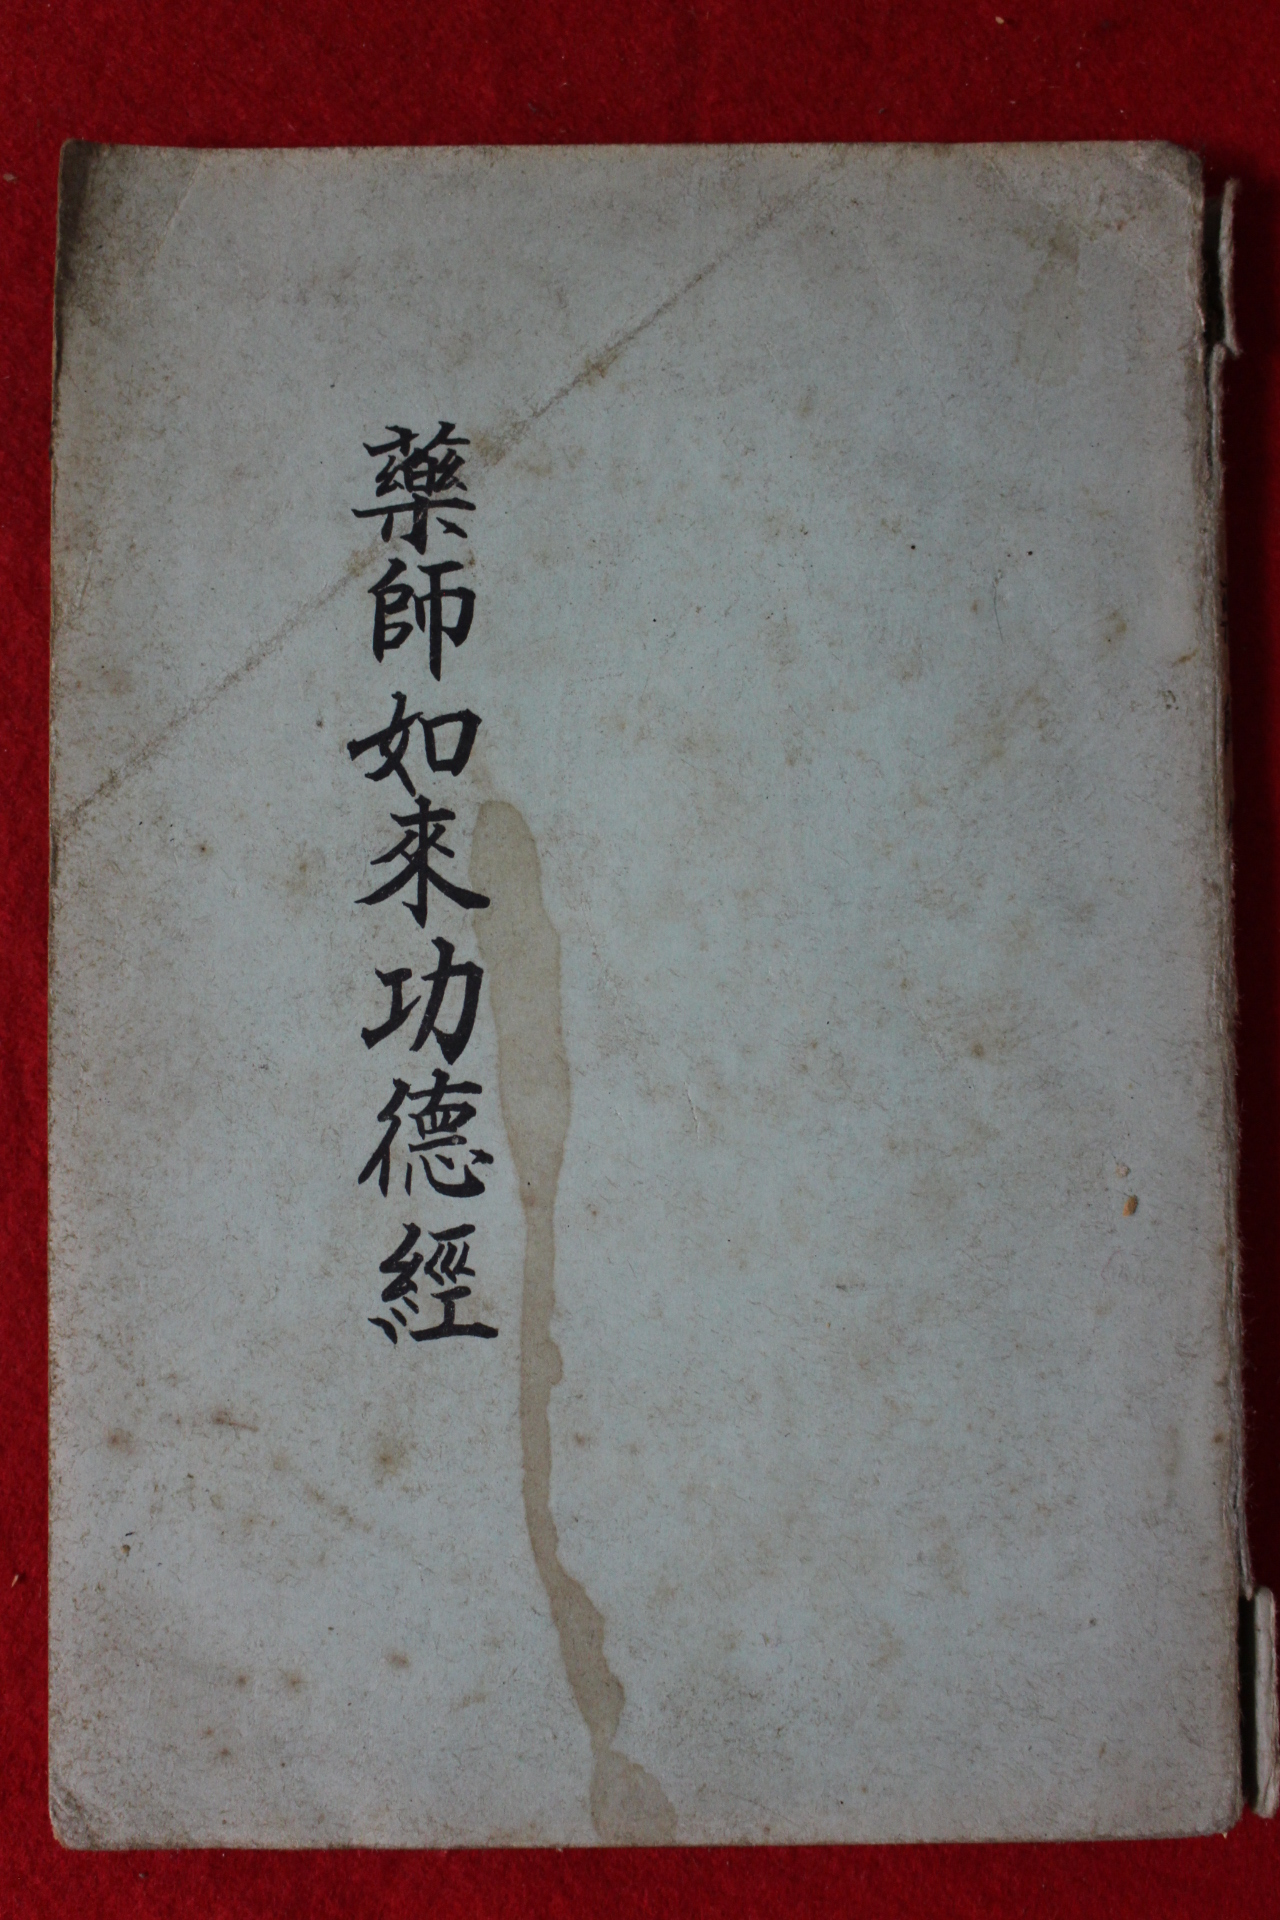 藥師如來功德經